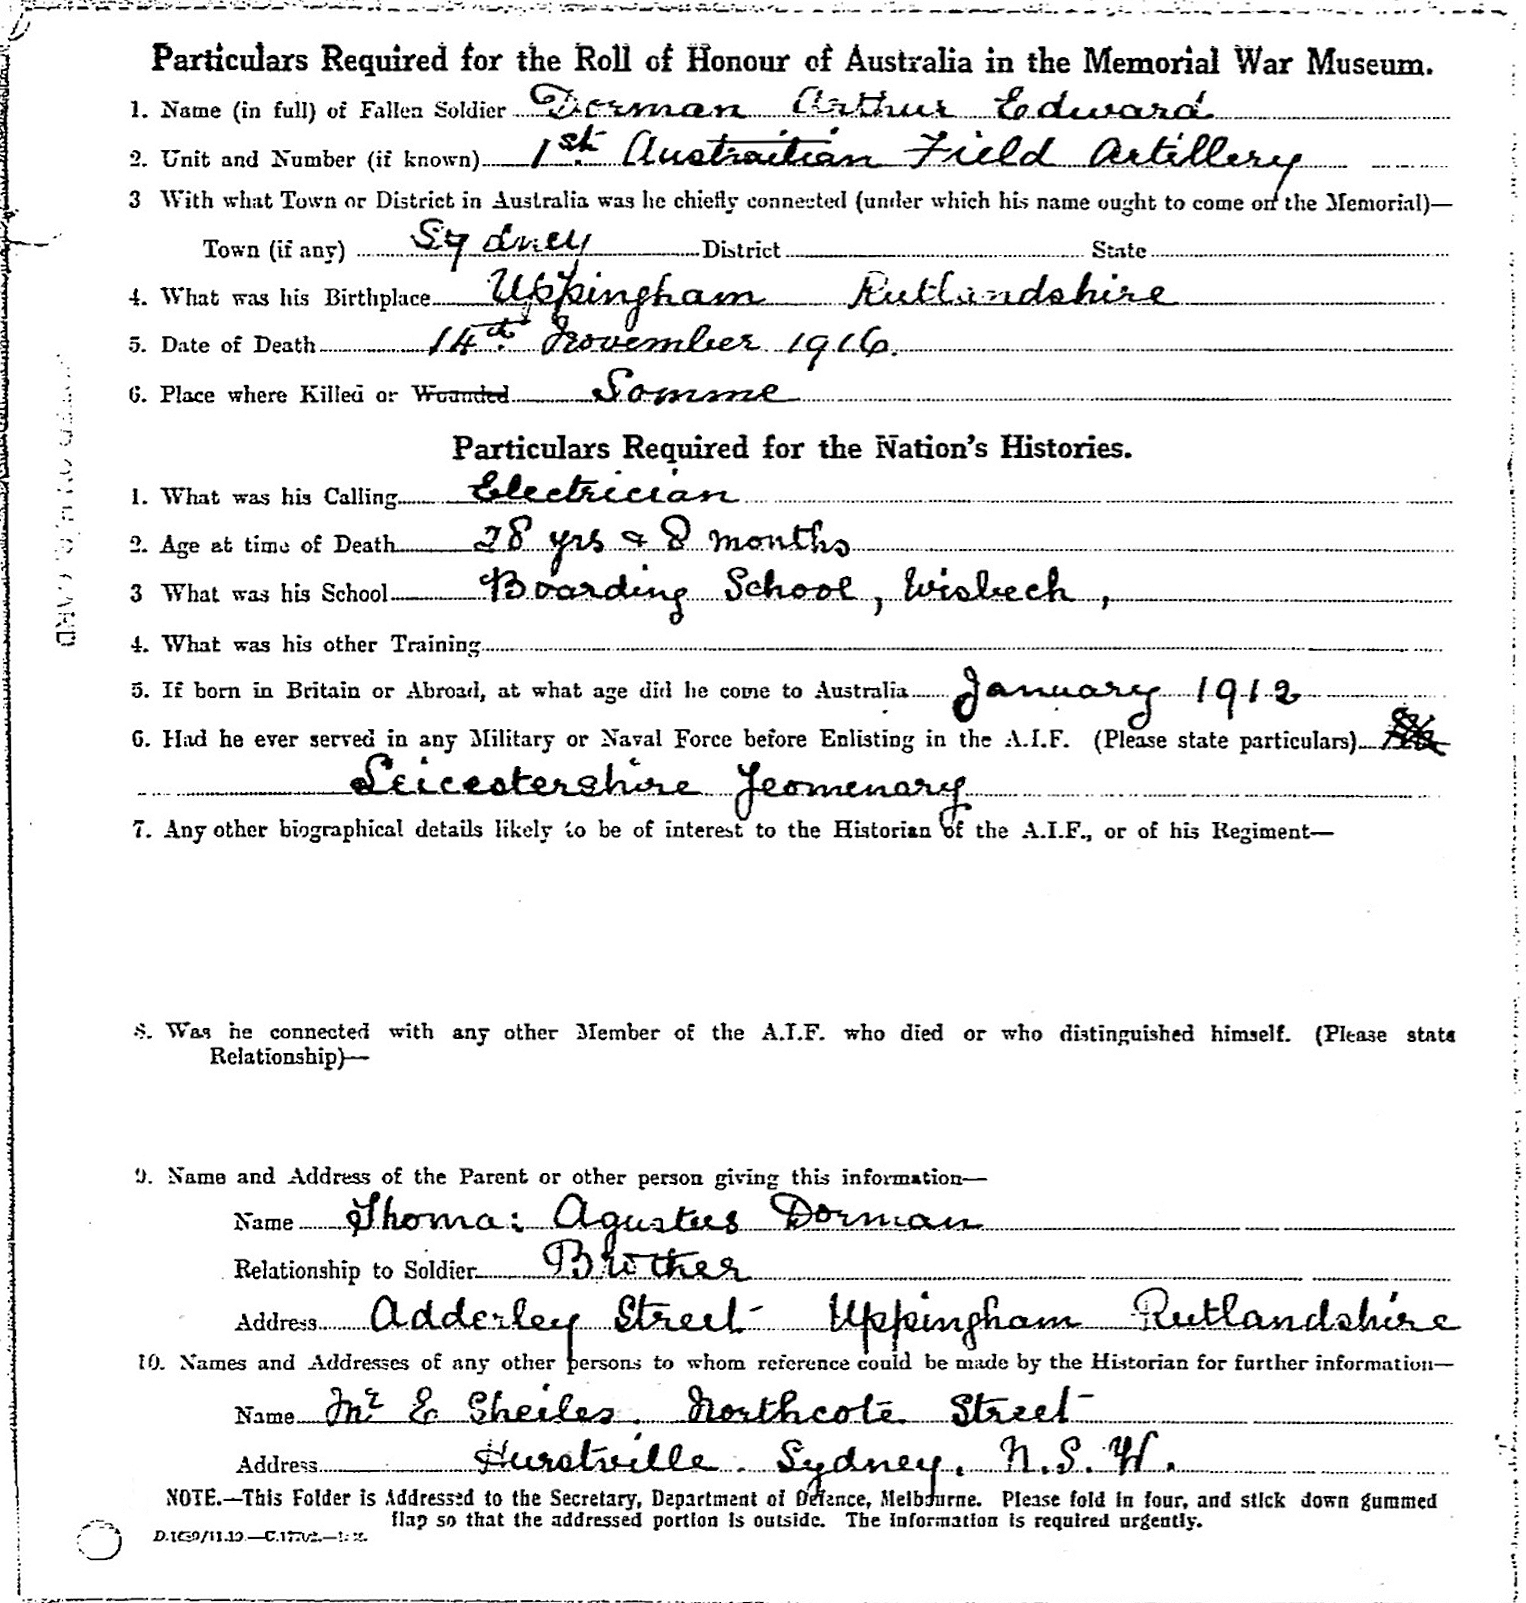 Particulars Required for the Roll of Honour of Australia in the Memorial War Museum.
1. Name (in full) of Fallen Soldier Dorman Arthur Edward
2. Unit and Number (if known) 1st Austrailian Field Artillery
3 With what Town or District in Australia was he chiefly connected (under which his name ought to come on the Memorial)—
Town (if any) Sydney District State
4. What was his Birthplace Uppingham Rutlandshire
5. Date of Death 14th November 1916.
6. Place where Killed or Wounded Somme
Particulars Required for the Nation's Histories.
1. What was his Calling Electrician
2. Age at time of Death 28 yrs & 8 months
3 What was his School Boarding School, Wisbech,
4. What was his other Training
5. If born in Britain or Abroad, at what age did he come to Australia January 1912
6. Had he ever served in any Military or Naval Force before Enlisting in the A.I.F. (Please state particulars)
Leicestershire Yeomenary
7. Any other biographical details likely to be of interest to the Historian of the A.I.F., or of his Regiment—
8. Was he connected with any other Member of the A.I.F. who died or who distinguished himself. (Please state
Relationship)—
9. Name and Address of the Parent or other person giving this information—
Name Thomas Agustus Dorman
Relationship to Soldier Brother
Address Adderley Street Uppingham Rutlandshire
10. Names and Addresses of any other persons to whom reference could be made by the Historian for further information—
Name Mr E Sheiles. Northcote Street
Address Hurstville. Sydney. N.S.W.
NOTE.—This Folder is Addressed to the Secretary, Department of Defence, Melbourne. Please fold in four, and stick down gummed
flap so that the addressed portion is outside. The information is required urgently.